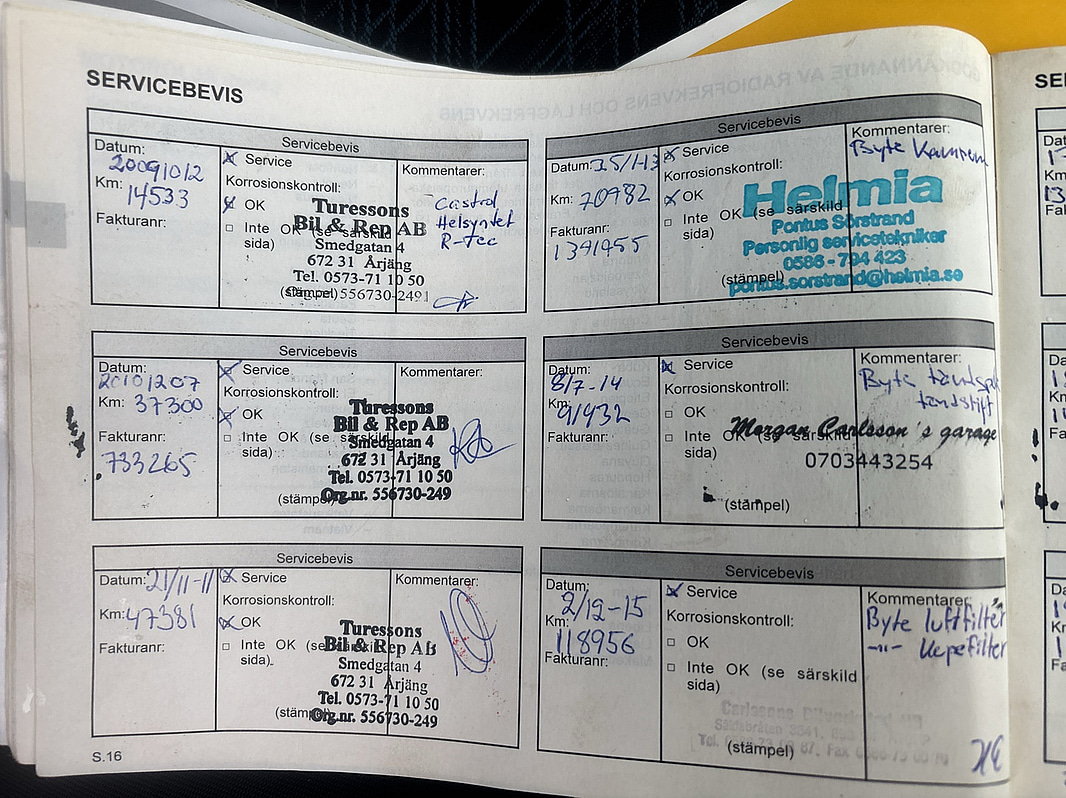 SERVICEBEVIS
Servicebevis
Datum:
20091012
Km:
14533
Fakturanr:
Service
Korrosionskontroll:
OK
Inte OK (se särskild
sida)
(stämpel)
Turessons
Bil & Rep AB
Smedgatan 4
672 31 Årjäng
Tel. 0573-71 10 50
556730-2491
Kommentarer:
Castrol
Helsyntet
R-Tec
Servicebevis
Datum:
20101207
Km: 37300
Fakturanr:
733265
Service
Korrosionskontroll:
OK
Inte OK (se särskild
sida)
(stämpel)
Turessons
Bil & Rep AB
Smedgatan 4
672 31 Årjäng
Tel. 0573-71 10 50
Org.nr. 556730-249
Kommentarer:
Servicebevis
Datum: 21/11-11
Km: 47381
Fakturanr:
Service
Korrosionskontroll:
OK
Inte OK (se särskild
sida).
(stämpel)
Turessons
Bil & Rep AB
Smedgatan 4
672 31 Årjäng
Tel. 0573-71 10 50
Org.nr. 556730-249
Kommentarer:
S.16
Servicebevis
Datum:
Km: 70982
Fakturanr:
1391455
Service
Korrosionskontroll:
OK
Inte OK (se särskild
sida)
(stämpel)
Helmia
Pontus Sörstrand
Personlig servicetekniker
0586 - 794 423
pontus.sorstrand@helmia.se
Kommentarer:
Byte Kamrem
Servicebevis
Datum:
8/7-14
Km:
91932
Fakturanr:
Service
Korrosionskontroll:
OK
Inte OK (se särskild
sida)
(stämpel)
Morgan Carlsson's garage
0703443254
Kommentarer:
Byte
tändstift
Servicebevis
Datum:
2/12-15
Km:
118956
Fakturanr:
Service
Korrosionskontroll:
OK
Inte OK (se särskild
sida)
(stämpel)
Kommentarer:
Byte luftfilter
-"- Kupefilter